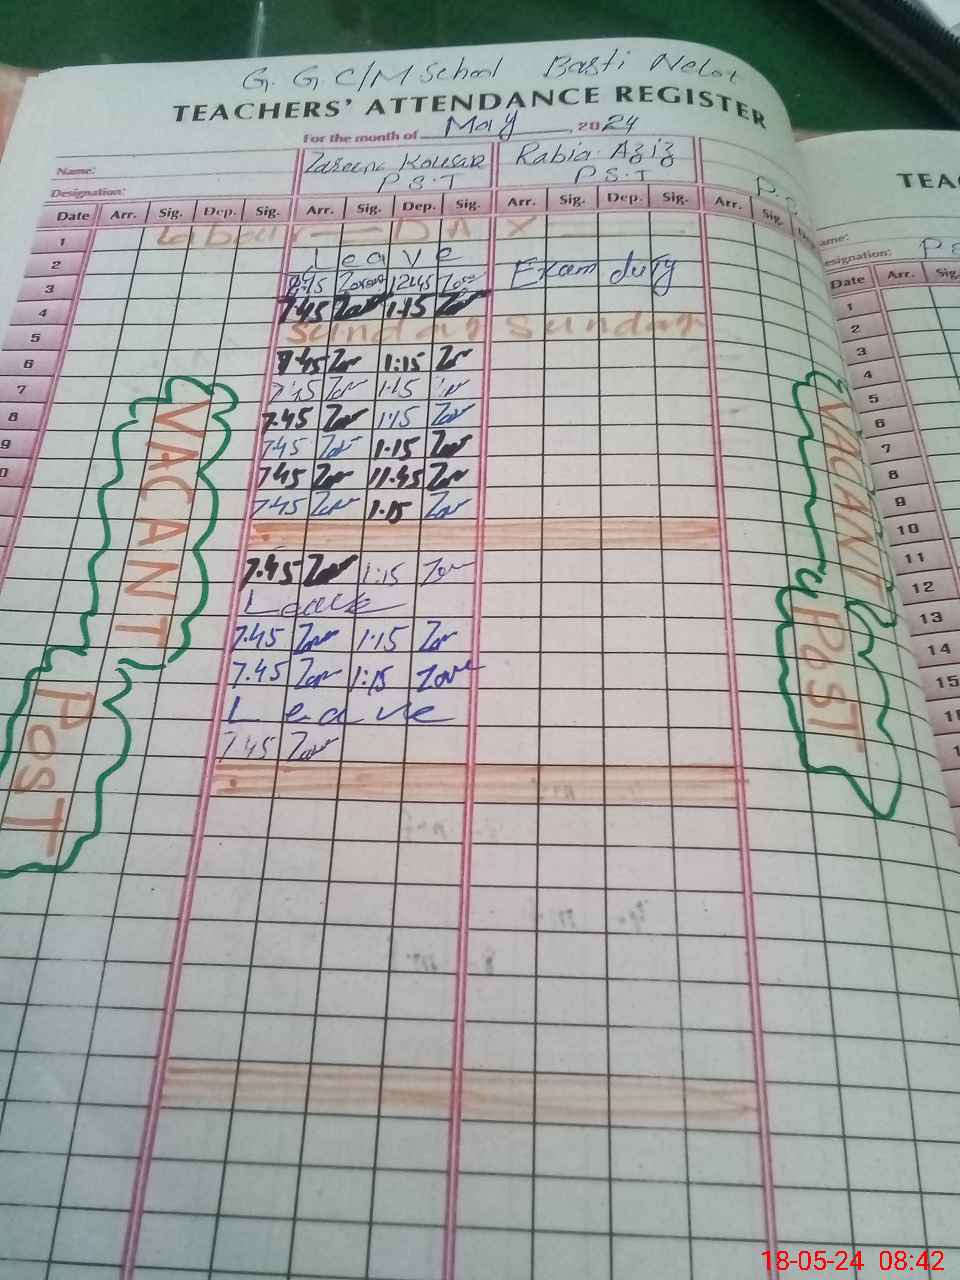 G. G C/M School Basti
TEACHERS' ATTENDANCE REGISTER
For the month of May, 2024
Name: Zareena Kousar Rabia Aziz
Designation: P.S.T P.S.T P.S
Date Arr. Sig. Dep. Sig. Arr. Sig. Dep. Sig. Arr. Sig. Dep. Sig. Arr. Sig.
1 Labour DAY
2 Leave
3 12:45 Exam duty
4 7.45 Zar 1.15 Zar
5 Sunday Sunday
6 7.45 Zar 1:15 Zar
7 7.45 Zar 1.15 Zar
8 7.45 Zar 1.15 Zar
9 7.45 Zar 1.15 Zar
7.45 Zar 11.45 Zar
7.45 Zar 1.15 Zar
7.45 Zar 1:15 Zar
Leave
7.45 Zar 1.15 Zar
7.45 Zar 1:15 Zar
Leave
7.45 Zar
VACANT
POST
VACANT
POST
TEAC
ame:
esignation: P
Date Arr. Sig
1
2
3
4
5
6
7
8
9
10
11
12
13
14
15
18-05-24 08:42